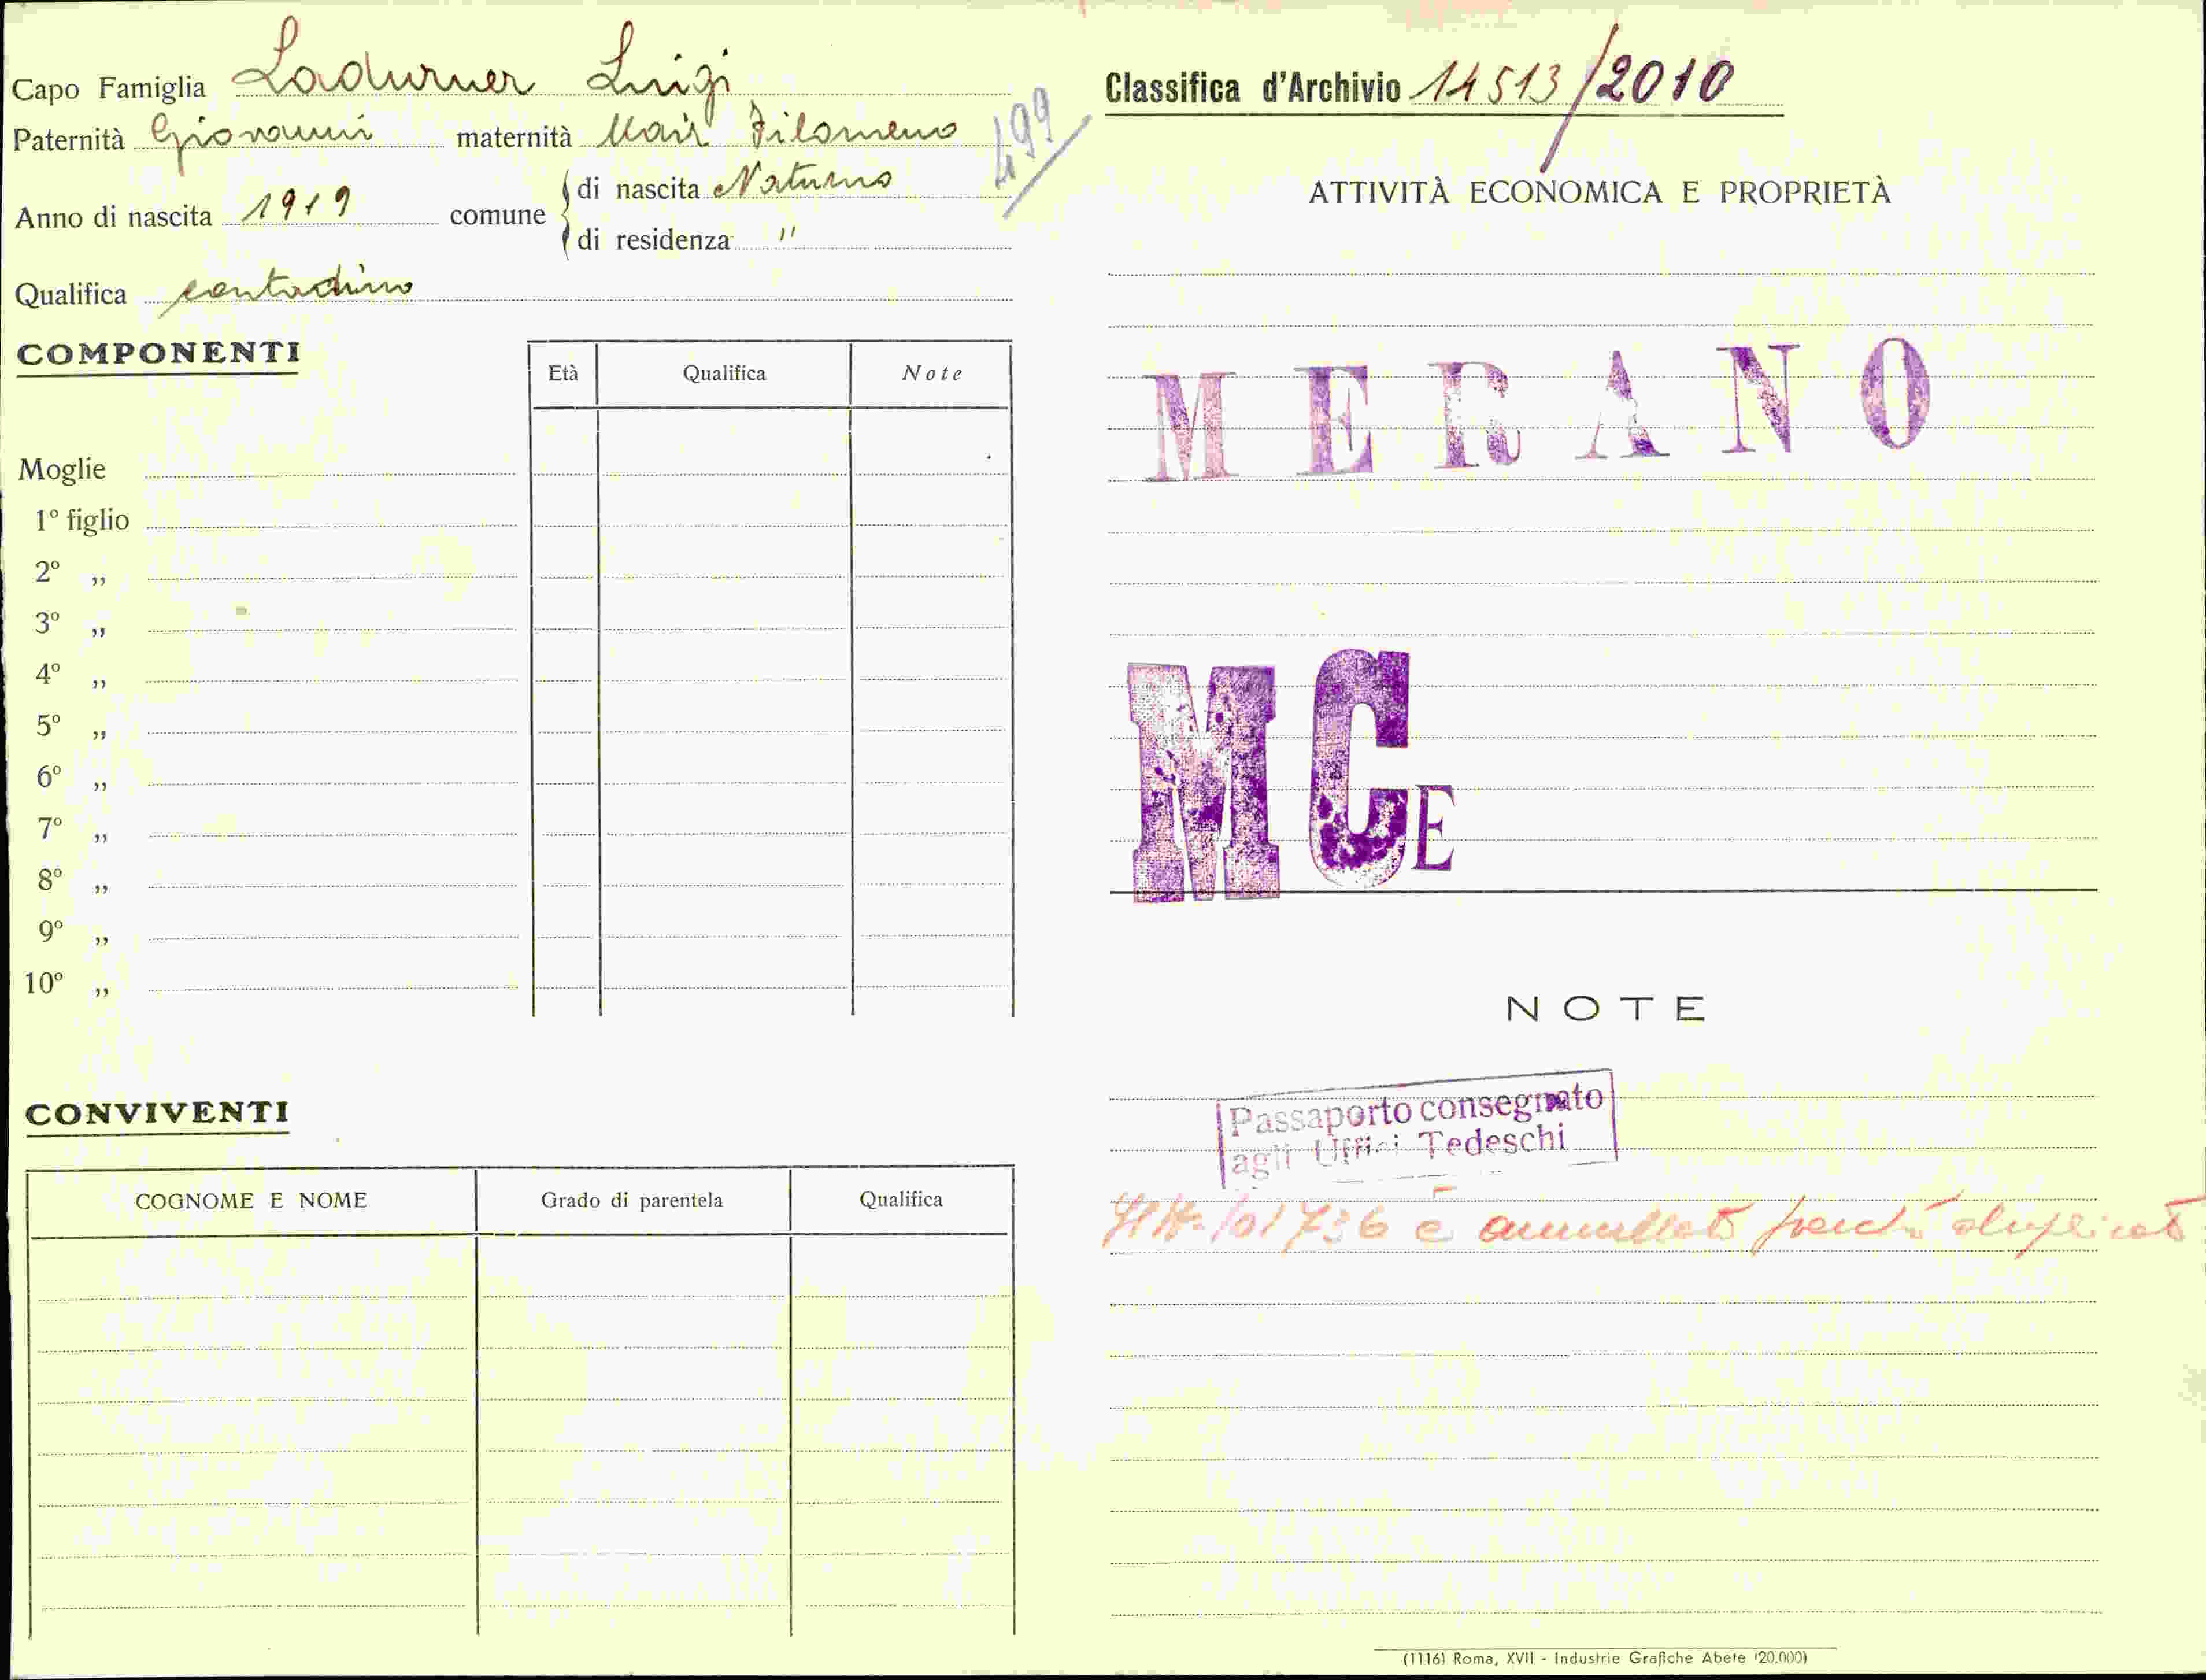 Capo Famiglia Ladurner Luigi
Paternità Giovanni maternità Mair Filomena
499
Anno di nascita 1919 comune di nascita Naturno
di residenza "
Qualifica contadino
COMPONENTI
Età Qualifica Note
Moglie
1º figlio
2º „
3º „
4º „
5º „
6º „
7º „
8º „
9º „
10º „
CONVIVENTI
COGNOME E NOME Grado di parentela Qualifica
Classifica d'Archivio 14513/2010
ATTIVITÀ ECONOMICA E PROPRIETÀ
MERANO
MCE
NOTE
Passaporto consegnato
agli Uffici Tedeschi
101736 è annullato perché duplicato
(1116) Roma, XVII - Industrie Grafiche Abete (20.000)